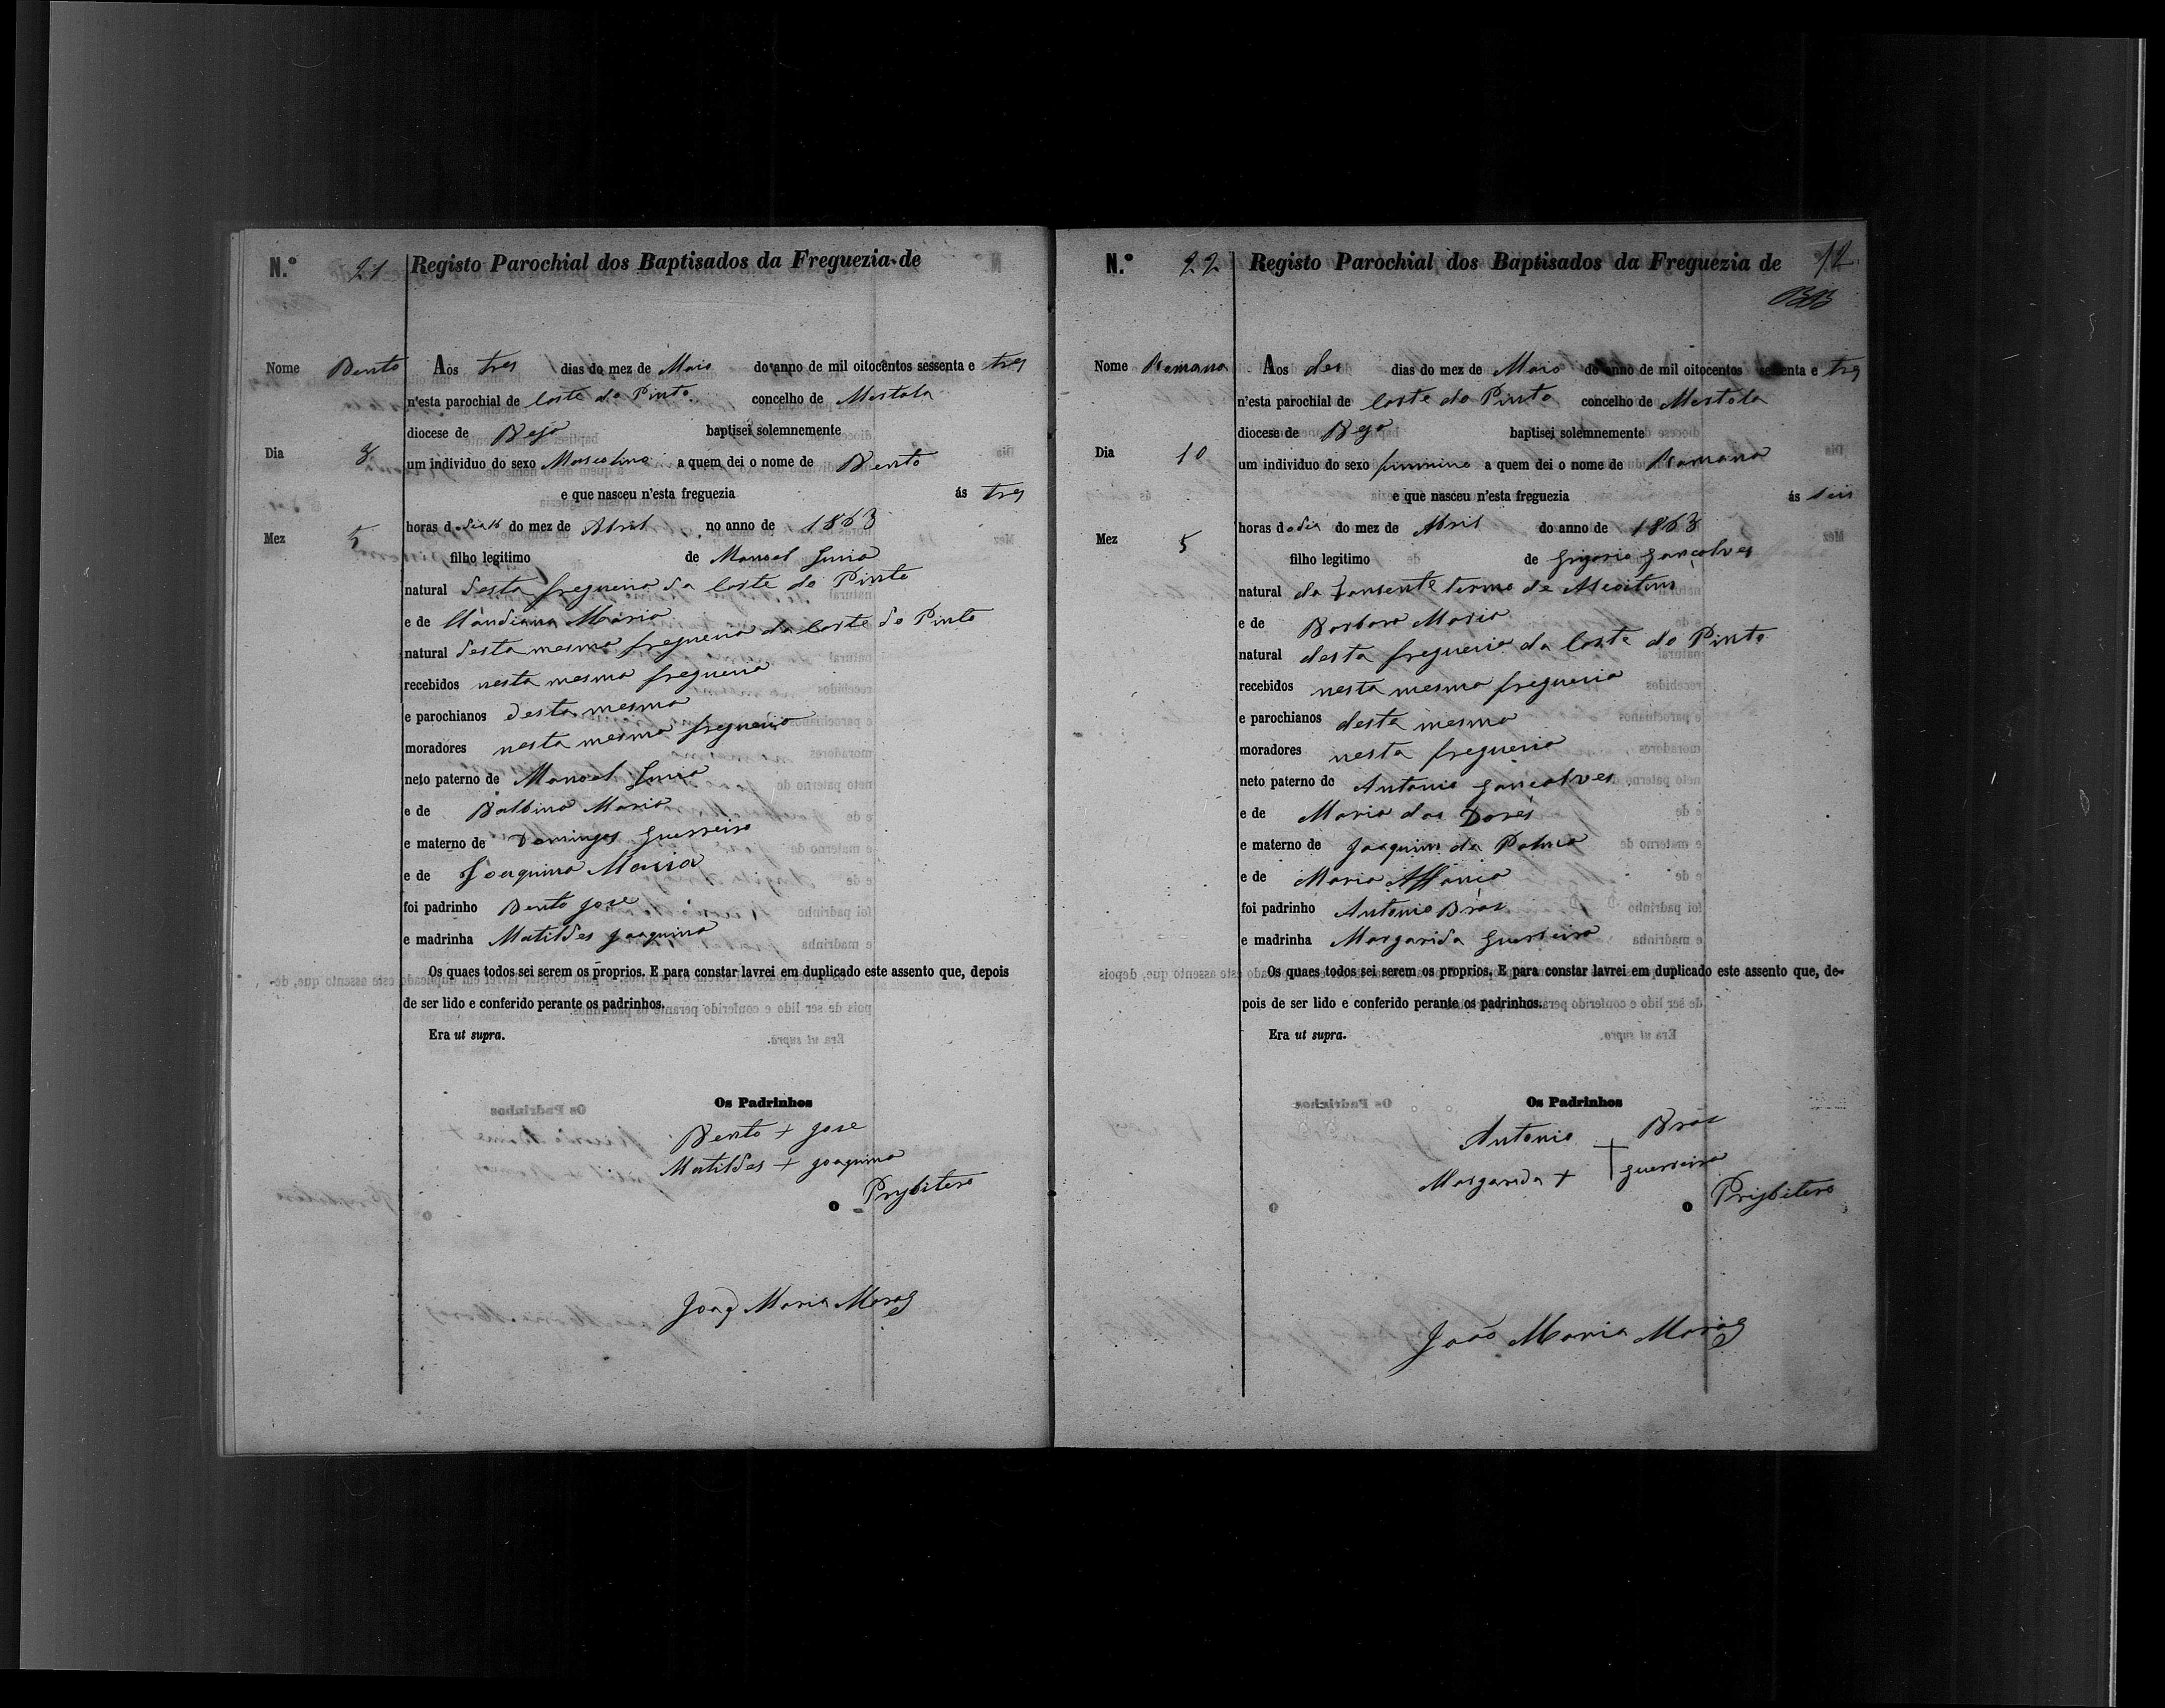 N.º 21 Registo Parochial dos Baptisados da Freguezia de
Nome Bento Aos tres dias do mez de Maio do anno de mil oitocentos sessenta e tres
n'esta parochial de Corte do Pinto concelho de Mertola
diocese de Beja baptisei solemnemente
Dia 3 um individuo do sexo Masculino a quem dei o nome de Bento
e que nasceu n'esta freguezia ás tres
Mez 5 horas do dia 16 do mez de Abril no anno de 1863
filho legitimo de Manoel
natural desta fregueria da Corte do Pinto
e de Claudiana Maria
natural desta mesma fregueria da Corte do Pinto
recebidos nesta mesma fregueria
e parochianos desta mesma
moradores nesta mesma fregueria
neto paterno de Manoel
e de Balbina Maria
e materno de Domingos Guerreiro
e de Joaquina Maria
foi padrinho Bento Jose
e madrinha Matildes Joaquina
Os quaes todos sei serem os proprios. E para constar lavrei em duplicado este assento que, depois
de ser lido e conferido perante os padrinhos.
Era ut supra.
Os Padrinhos
Bento + Jose
Matildes + Joaquina
O Prysbitero
João Maria
N.º 22 Registo Parochial dos Baptisados da Freguezia de 12
Nome Romana Aos des dias do mez de Maio do anno de mil oitocentos sessenta e tres
n'esta parochial de Corte do Pinto concelho de Mertola
diocese de Beja baptisei solemnemente
Dia 10 um individuo do sexo feminino a quem dei o nome de Romana
e que nasceu n'esta freguezia ás seis
Mez 5 horas do dia do mez de Abril do anno de 1863
filho legitimo de Grigorio Gonçalves
natural da termo de Alcoitem
e de Barbara Maria
natural desta fregueria da Corte do Pinto
recebidos nesta mesma fregueria
e parochianos desta mesma
moradores nesta fregueria
neto paterno de Antonio Gonçalves
e de Maria das Dores
e materno de Joaquim da Palma
e de Maria
foi padrinho Antonio Bras
e madrinha Margarida Guerreira
Os quaes todos sei serem os proprios. E para constar lavrei em duplicado este assento que, de-
pois de ser lido e conferido perante os padrinhos.
Era ut supra.
Os Padrinhos
Antonio + Bras
Margarida + Guerreira
O Prisbitero
João Maria